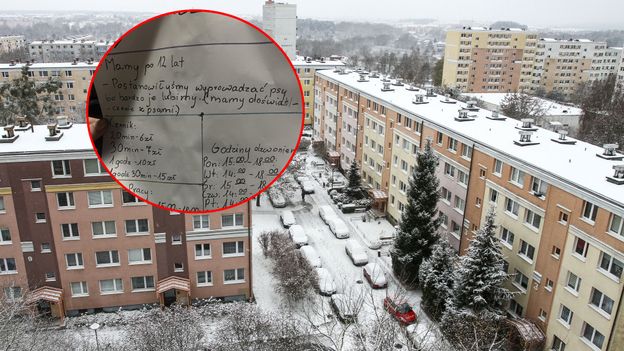 Mamy po 12 lat
- Postanowiłyśmy wyprowadzać psy
bo bardzo je lubimy. (mamy doświad-
czenie z psami)
Cennik:
20min-6zł
30min-7zł
1godz-10zł
godz 30min-15zł
Godziny dzwonienia
Pon: 15.00 - 18.00
Wt: 14.00 - 18.00
Śr: 15 - 18
Czw. 14.00
Pt.
Pracy:
15.00 - 18.00